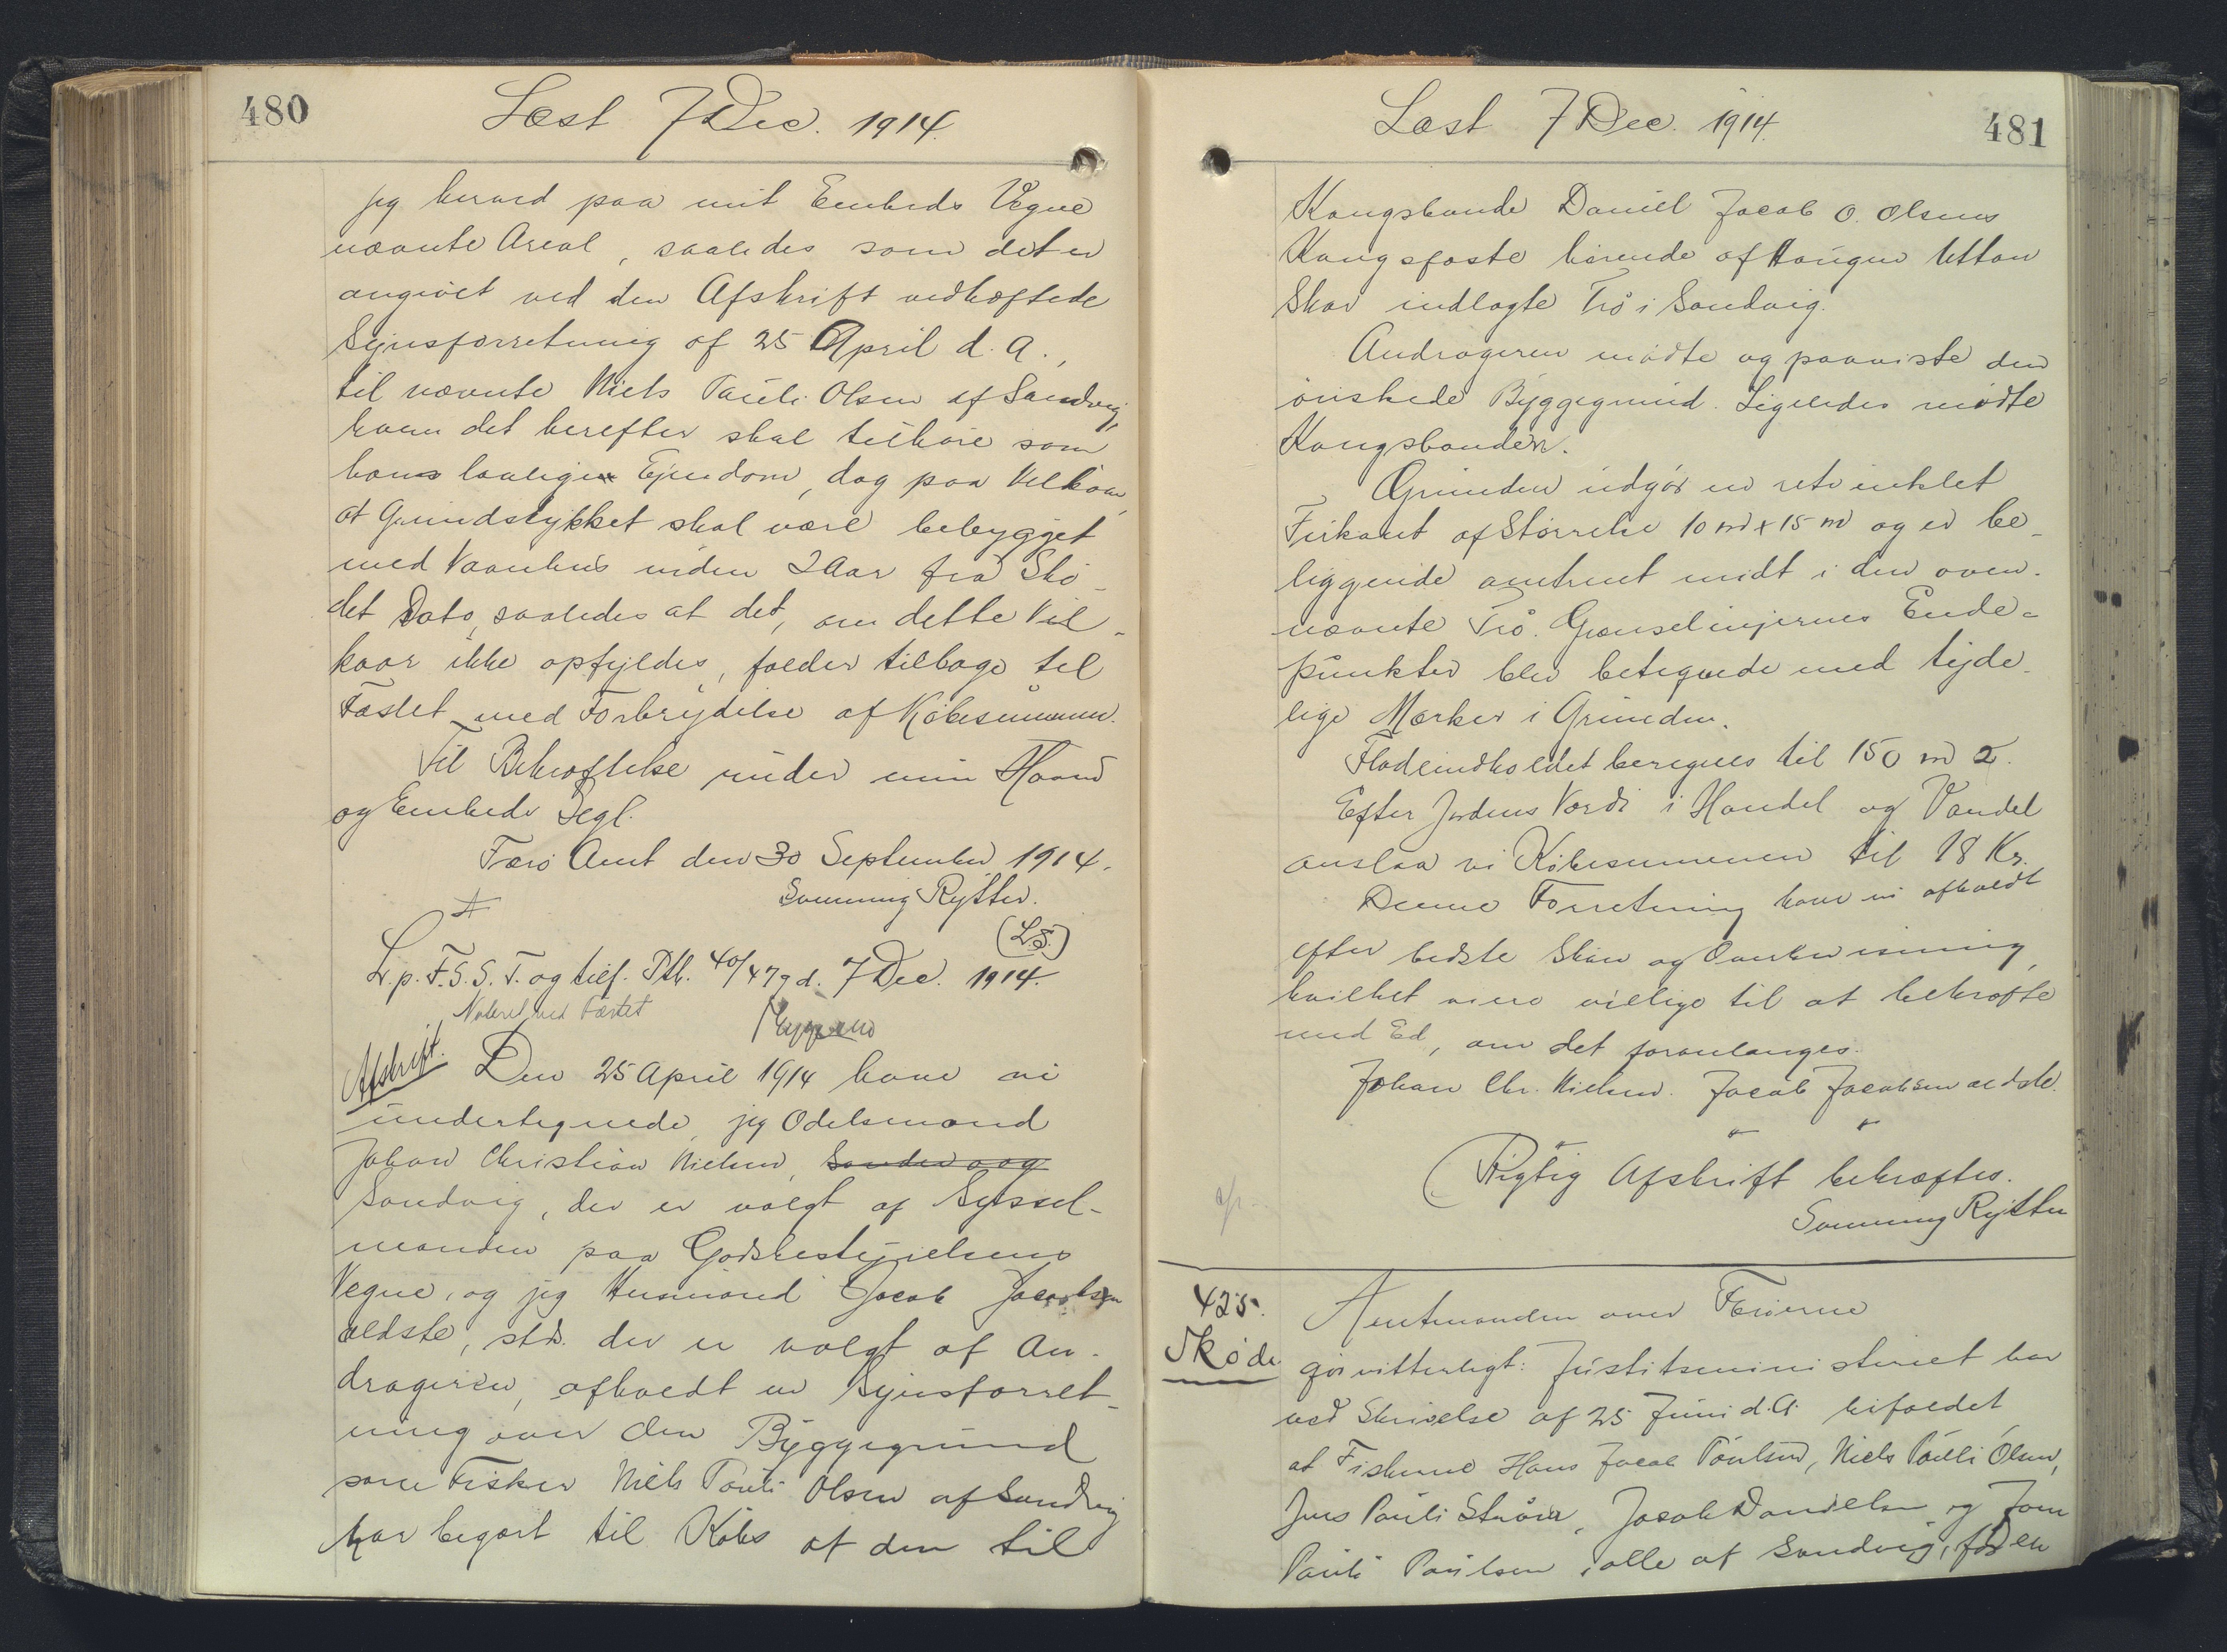 480
Læst 7 Dec. 1914.
jeg herved paa mit Embeds Vegne
nævnte Areal, saaledes som det er
angivet ved den Afskrift vedhæftede
Synsforretning af 25 April d. A.,
til nævnte Niels Pauli Olsen af Sandvig,
hvem det herefter skal tilhøre som
hans lovlige Ejendom, dog paa Vilkaar,
at Grundstykket skal være bebygget
med Vaanhus inden 2 Aar fra Skø-
det Dato, saaledes at det, om dette Vil-
kaar ikke opfyldes, falder tilbage til
Fæstet med Forbrydelse af Købesummen.
Til Bekræftelse under min Haand
og Embeds Segl.
Færø Amt den 30 September 1914.
Svenning Rytter.
(L.S.)
L. p. F. S. S. T. og tilf. Ptb. 40/479 d. 7 Dec. 1914.
Noteret ved Fæstet
Afskrift.
Den 25 April 1914 have vi
undertegnede, jeg Odelsmand
Johan Christian Nielsen, Sandevaag
Sandvig, der er valgt af Syssel-
manden paa Godsbestyrelsens
Vegne, og jeg Husmand Jacob Jacobsen
ældste, stds. der er valgt af An-
drageren, afholdt en Synsforret-
ning over den Byggegrund
som Fisker Niels Pauli Olsen af Sandvig
har begært til Købs af den til
Læst 7 Dec. 1914.
481
Kongsbonde Daniel Jacob O. Olsens
Kongsfæste hørende af Haugen Uttan
Skar indlagte Trø i Sandvig.
Andrageren mødte og paaviste den
ønskede Byggegrund. Ligeledes mødte
Kongsbonden.
Grunden udgør en retvinklet
Firkant af Størrelse 10 m x 15 m og er be-
liggende omtrent midt i den oven-
nævnte Trø. Grænselinjernes Ende-
punkter blev betegnede med tyde-
lige Mærker i Grunden.
Fladeindholdet beregnes til 150 m 2.
Efter Jordens Værdi i Handel og Vandel
anslaa vi Købesummen til 18 Kr.
Denne Forretning have vi afholdt
efter bedste Skøn og Overbevisning,
hvilket vi ere villige til at bekræfte
med Ed, om det foranlanges.
Johan Chr. Nielsen. Jacob Jacobsen ældste.
Rigtig Afskrift bekræftes.
Svenning Rytter
425.
Skøde
Amtmanden over Færøerne
gør vitterligt: Justitsministeriet har
ved Skrivelse af 25 Juni d. A. bifaldet,
at Fiskerne Hans Jacob Poulsen, Niels Pauli Olsen,
Jens Pauli Strøm, Jacob Danielsen og Joen
Pauli Poulsen, alle af Sandvig, fra den